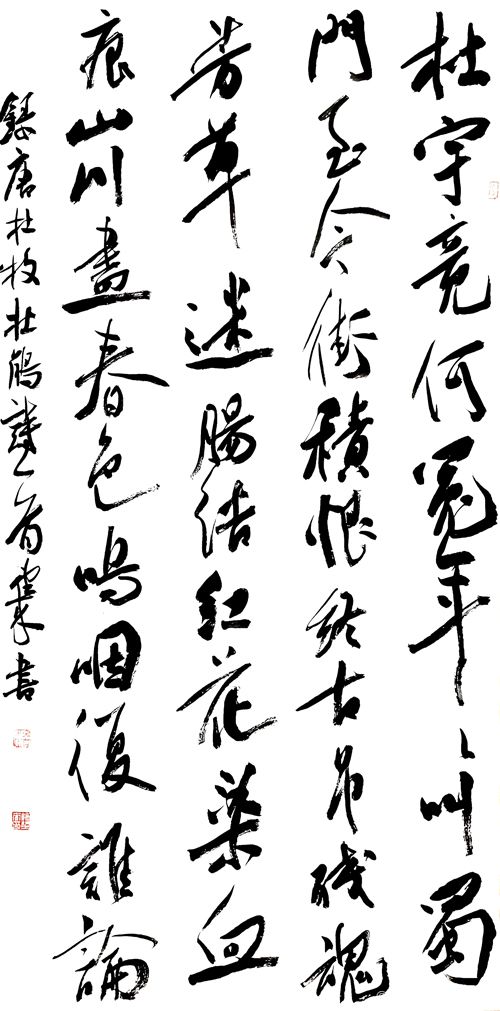 杜宇竟何冤年々叫蜀
門至今銜積恨終古吊殘魂
芳草迷腸結紅花染血
痕山川盡春色嗚咽復誰論
錄唐杜牧杜鵑詩一首 書